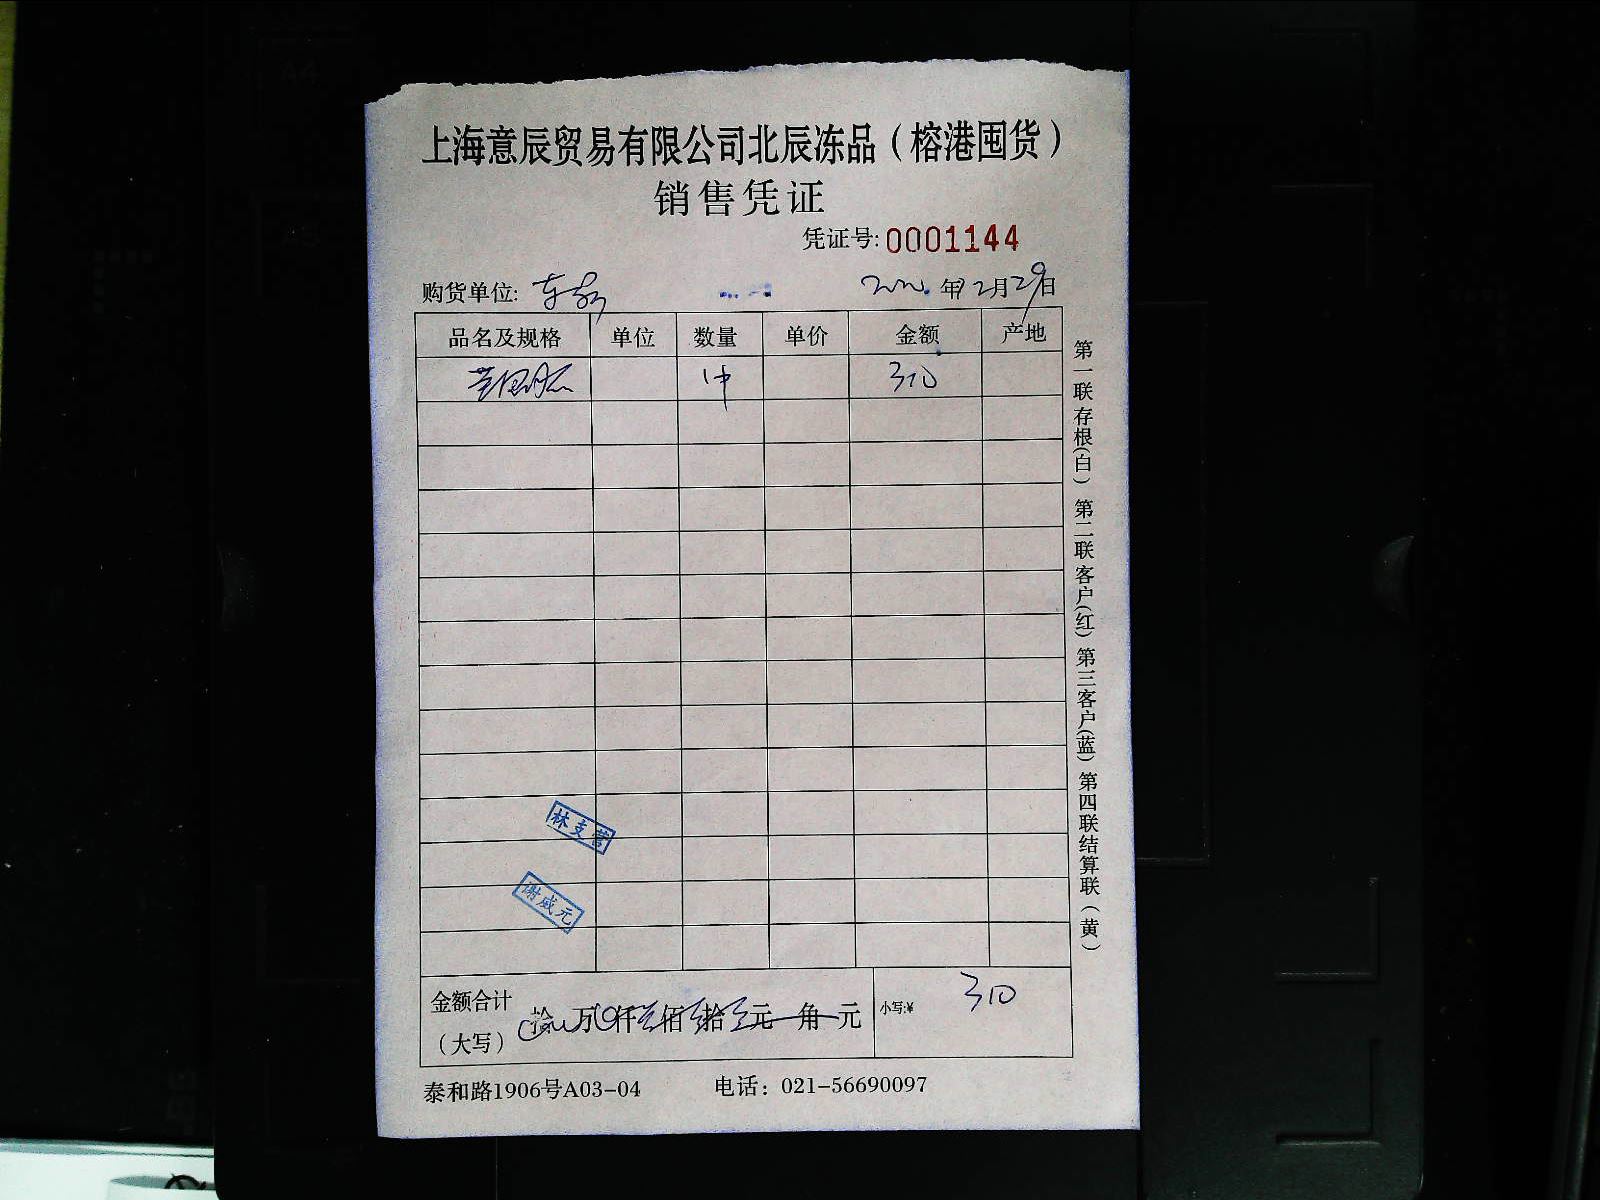 上海意辰贸易有限公司北辰冻品（榕港囤货）
销售凭证
凭证号: 0001144
购货单位: 年 2月29日
品名及规格 单位 数量 单价 金额 产地
1件 310
林支营
谢威元
金额合计（大写） 拾 万 仟 佰 拾 元 角 元 小写:¥ 310
泰和路1906号A03-04 电话：021-56690097
第一联存根(白) 第二联客户(红) 第三客户(蓝) 第四联结算联（黄）